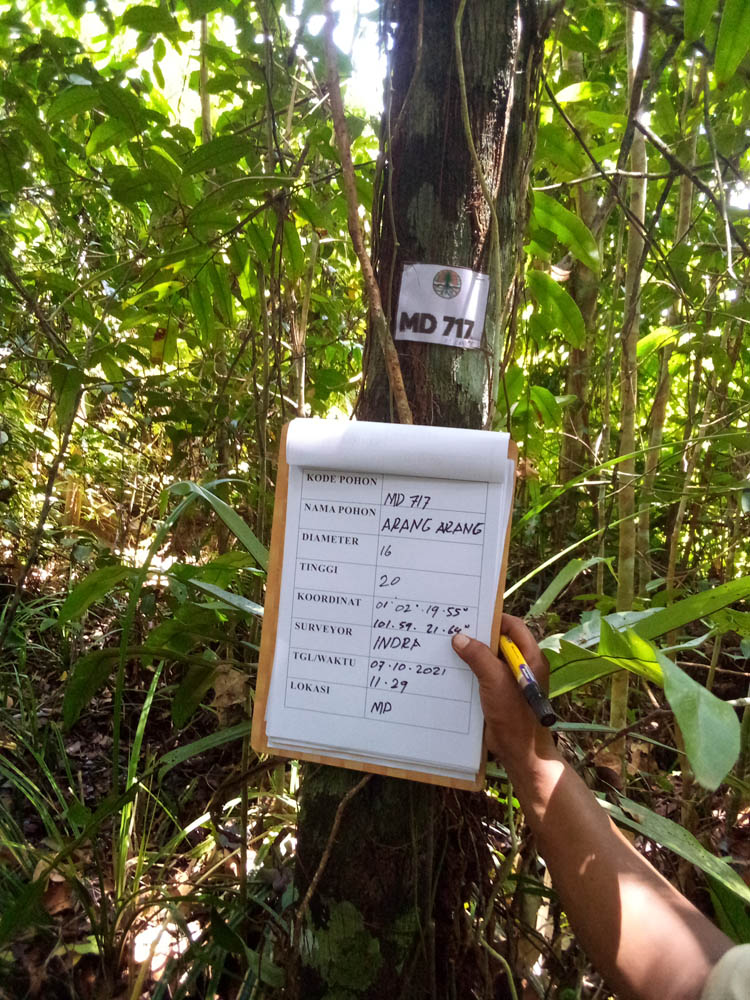 MD 717
KODE POHON MD 717
NAMA POHON ARANG ARANG
DIAMETER 16
TINGGI 20
KOORDINAT 01° 02' . 19.55"
101. 59. 21.64"
SURVEYOR INDRA
TGL/WAKTU 09.10.2021
11.29
LOKASI MD